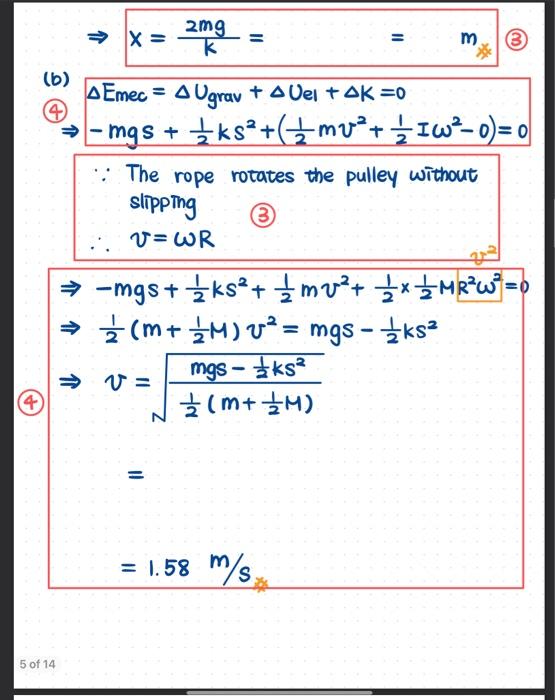 ⇒ x = 2mg/k = = m※ ③
(b)
④ ΔEmec = ΔUgrav + ΔUel + ΔK = 0
⇒ -mgs + ½ks² + (½mv² + ½Iω² - 0) = 0
∵ The rope rotates the pulley without
slipping ③
∴ v = ωR
v²
⇒ -mgs + ½ks² + ½mv² + ½ × ½MR²ω² = 0
⇒ ½(m + ½M)v² = mgs - ½ks²
④ ⇒ v = √((mgs - ½ks²)/(½(m + ½M)))
=
= 1.58 m/s※
5 of 14